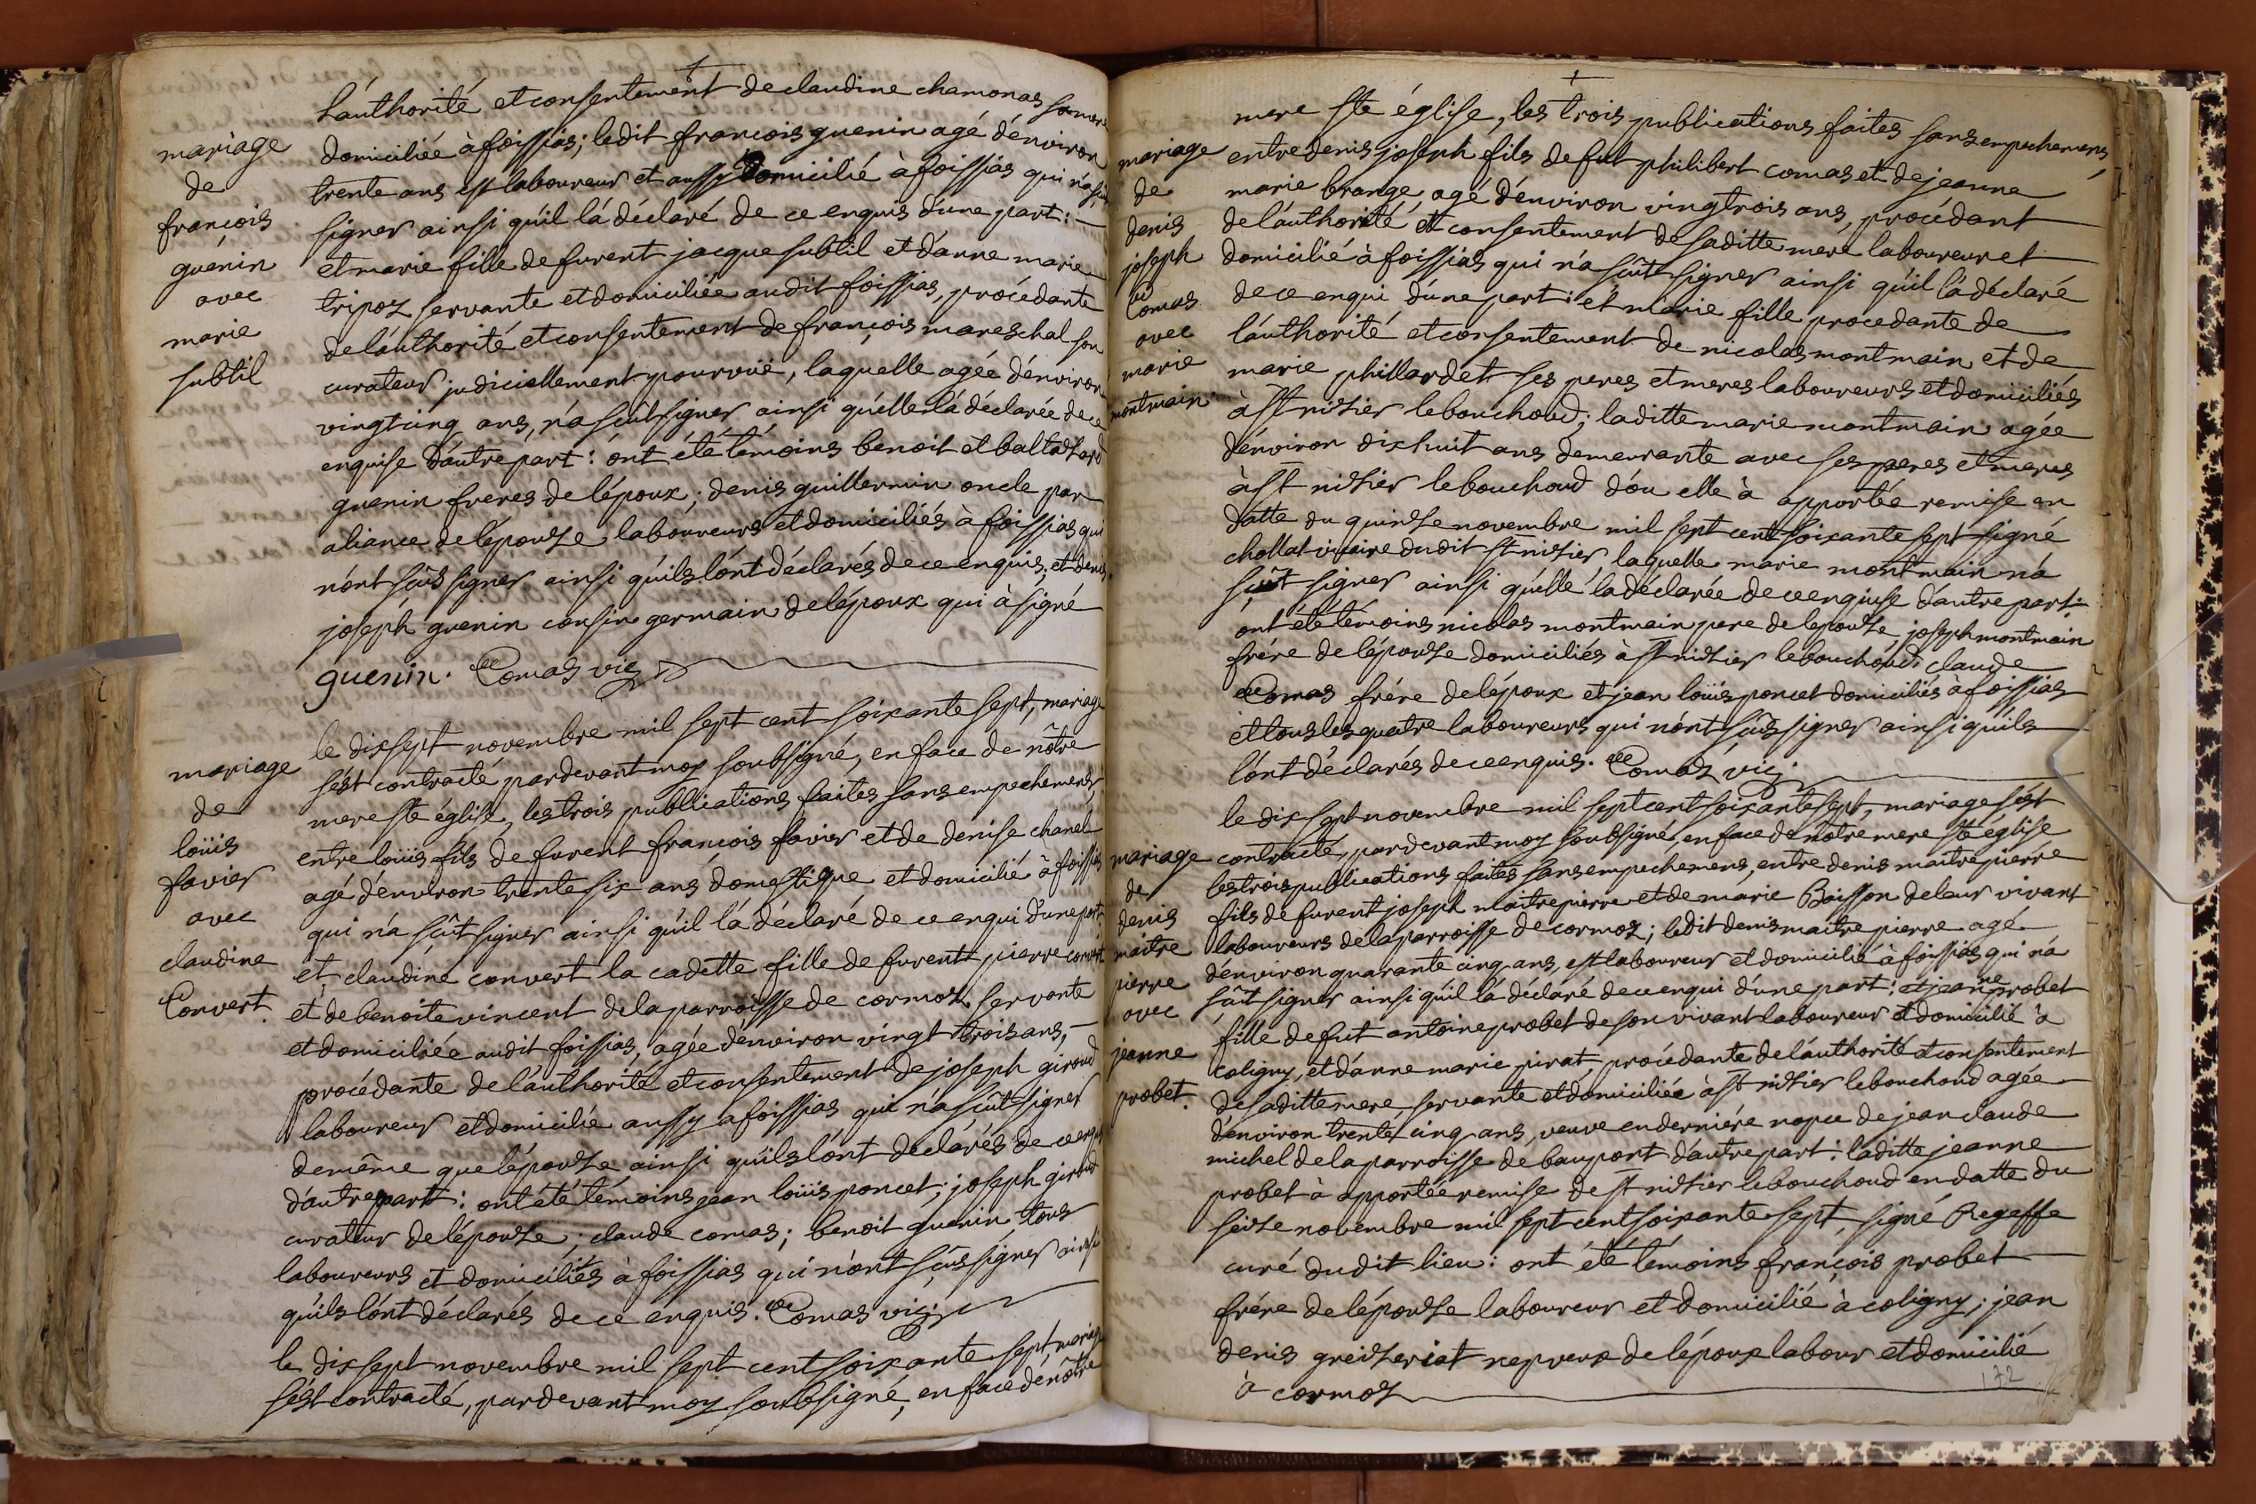 l'áuthorité et consentement de claudine chamonas sa mere
domiciliée à foissias; ledit francois guenin agé d'énviron
trente ans est laboureur et aussy domicilié à foissias qui n'a sçût
signer ainsi qu'il lá déclaré de ce enquis d'une part:
et marie fille de furent jacque subtil et dánne marie
tripoz servante et domiciliée audit foissias, procédante
de láuthorité et consentement de françois mareschal son
curateur judiciellement pourvüe, laquelle agée d'énviron
vingt cinq ans, n'a sçût signer ainsi qu'elle lá déclarée de ce
enquise dáutre part: ont été témoins benoit et baltazard
guenin freres de lépoux; denis guillermin oncle par
aliance de lépouze laboureurs et domiciliés à foissias qui
n'ont sçûs signer ainsi qu'ils l'ont déclarés de ce enquis; et denis
joseph guenin cousin germain de lépoux qui à signé
guenin. Comas vic
mariage
de
françois
guenin
avec
marie
subtil
le dix sept novembre mil sept cent soixante sept, mariage
s'ést contracté pardevant moy soubsigné, en face de nôtre
mere ste église, les trois publications faites sans empechemens,
entre loüis fils de furent françois favier et de denise chanel
agé d'énviron trente six ans domestique et domicilié à foissias
qui n'a sçût signer ainsi qu'il lá déclaré de ce enqui d'une part:
et claudine convert la cadette fille de furent pierre convert
et de benoite vincent de la parroisse de cormoz, servante
et domiciliée audit foissias, agée d'énviron vingt trois ans,
procédante de l'áuthorité et consentement de joseph giroud
laboureur et domicilié aussy a foissias qui n'a sçût signer
de même que lépouze ainsi qu'ils l'ónt déclarés de ce enquis
dáutre part: ont été témoins jean loüis poncet; joseph giroud
curateur de lépouze; claude comas; benoit guenin tous
laboureurs et domiciliés à foissias qui n'ónt sçûs signer ainsi
qu'ils l'ónt déclarés de ce enquis. Comas vic
mariage
de
loüis
favier
avec
claudine
Convert.
le dix sept novembre mil sept cent soixante sept mariage
s'ést contracté, pardevant moy soubsigné, en face de nôtre
mere ste église, les trois publications faites sans empechemens,
entre denis joseph fils de fut philibert comas et de jeanne
marie brange, agé d'énviron vingtrois ans, procédant
de l'áuthorité et consentement de saditte mere laboureur et
domicilié à foissias qui n'a sçût signer ainsi qu'il lá déclaré
de ce enqui d'une part: et marie fille procedante de
l'áuthorité et consentement de nicolas montmain et de
marie phillardet ses peres et meres laboureurs et domiciliés
à st nizier le bouchoud; laditte marie montmain agée
d'énviron dix huit ans demeurante avec ses peres et meres
à st nizier le bouchoud d'óu elle à apportée remise en
datte du quinze novembre mil sept cent soixante sept signé
chollat vicaire dudit st nizier, laquelle marie montmain n'a
sçût signer ainsi qu'elle lá déclarée de ce enquise d'áutre part:
ont été témoins nicolas montmain pere de lépouze, joseph montmain
frére de lépouze domiciliés à st nizier le bouchoud; claude
Comas frére de lépoux et jean loüis poncet domiciliés à foissias
et tous les quatre laboureurs qui n'ónt sçûs signer ainsi qu'ils
l'ónt déclarés de ce enquis. Comas vic.
mariage
de
denis
joseph
Comas
avec
marie
montmain
le dix sept novembre mil sept cent soixante sept, mariage s'ést
contracté, pardevant moy soubsigné, en face de nôtre mere ste église
les trois publications faites sans empechemens, entre denis maitrepierre
fils de furent joseph maitrepierre et de marie Boisson de leur vivant
laboureurs de la parroisse de cormoz; ledit denis maitre pierre agé
d'énviron quarante cinq ans, est laboureur et domicilié à foissias qui n'a
sçût signer ainsi qu'il lá déclaré de ce enqui d'une part: et jeanne probet
fille de fut antoine probet de son vivant laboureur et domicilié à
coligny, et dánne marie pirat, procédante de l'áuthorité et consentement
de saditte mere, servante et domiciliée à st nizier le bouchoud agée
d'énviron trente cinq ans, veuve en derniére nopce de jean claude
michel de la parroisse de beaupont d'áutre part: laditte jeanne
probet à apportée remise de st nizier le bouchoud en datte du
seize novembre mil sept cent soixante sept, signé Regaffe
curé dudit lieu: ont été témoins françois probet
frére de lépouze laboureur et domicilié à coligny; jean
denis greizeriat nepveux de lépoux labour et domicilié
à cormoz
mariage
de
denis
maitre
pierre
avec
jeanne
probet.
172